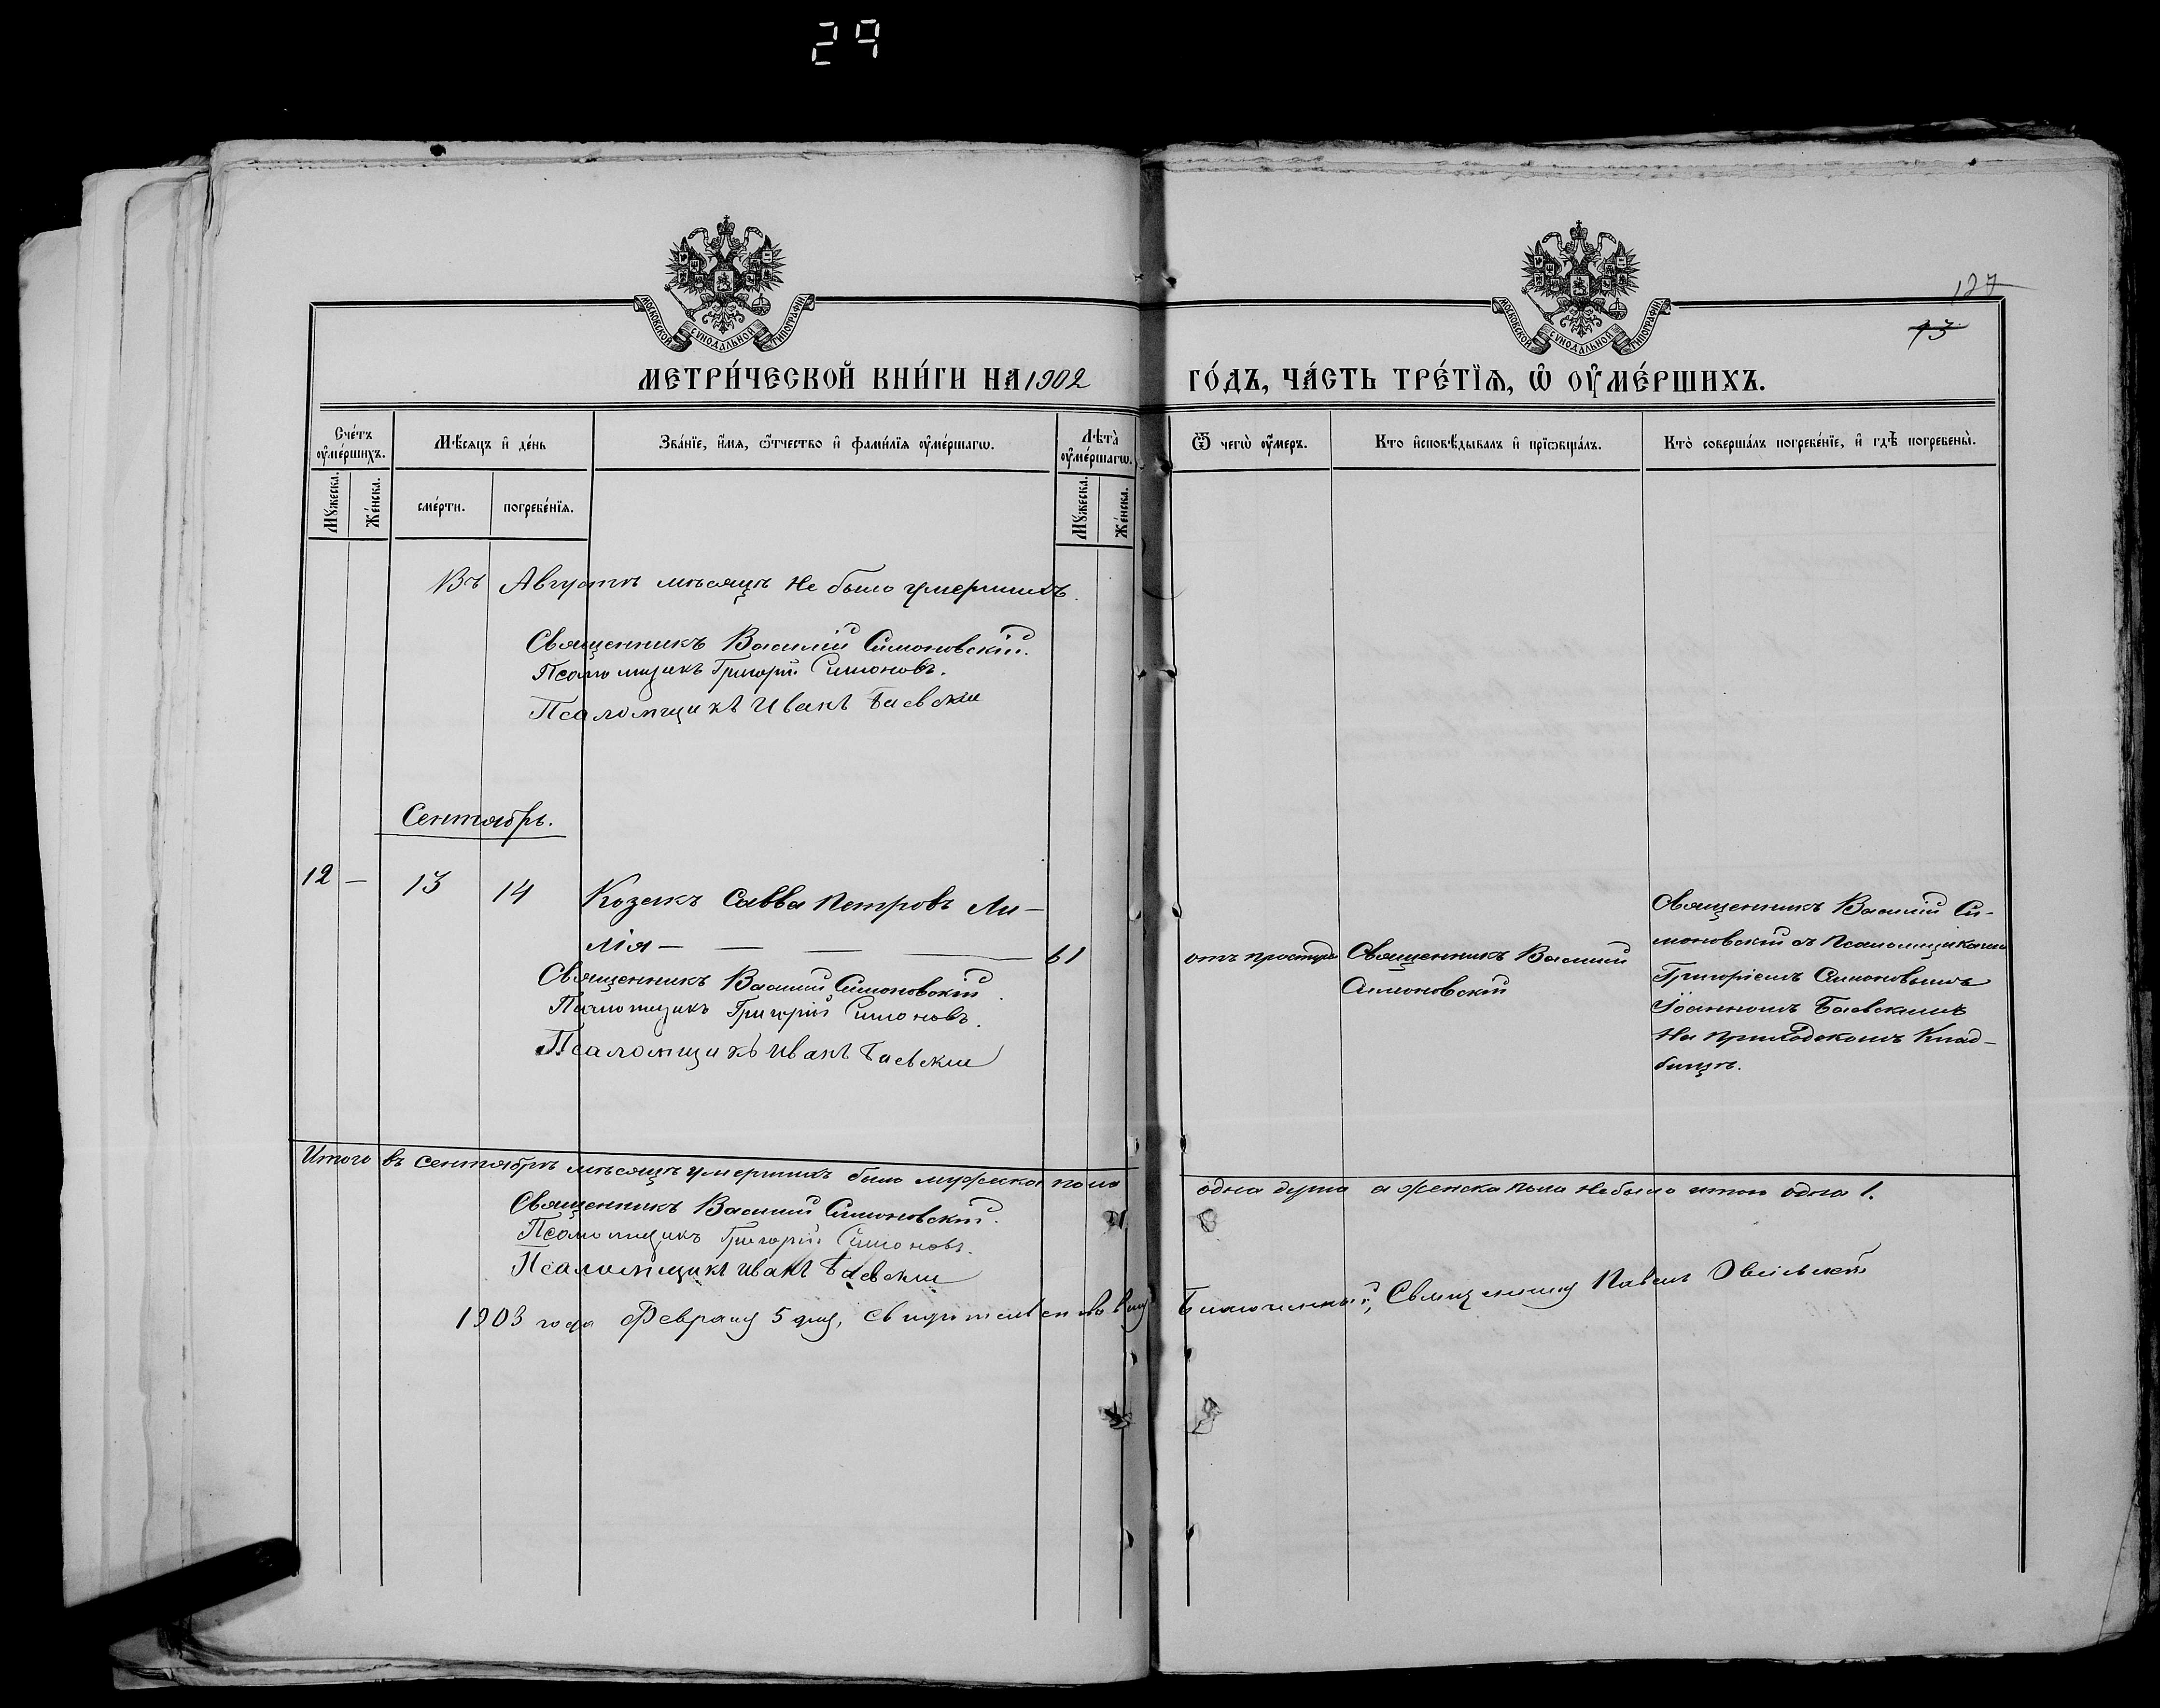 29
МОСКОВСКОЙ СѴНОДАЛЬНОЙ ТИПОГРАФІИ
МОСКОВСКОЙ СѴНОДАЛЬНОЙ ТИПОГРАФІИ
127
73
МЕТРИ́ЧЕСКОЙ КНИ́ГИ НА 1902 ГО́ДЪ, ЧА́СТЬ ТРЕ́ТЇѦ, Ѡ҆ ОУ҆МЕ́РШИХЪ.
Сче́тъ оу҆ме́ршихъ.
Мѣ́сяцъ и҆ де́нь
Зва́нїе, и҆́мя, ѻ҆́тчество и҆ фами́лїя оу҆ме́ршагѡ.
Лѣта̀ оу҆ме́ршагѡ.
Ѿ чегѡ̀ оу҆́меръ.
Кто и҆сповѣ́дывалъ и҆ прїѡбща́лъ.
Кто̀ соверша́лъ погребе́нїе, и҆ гдѣ̀ погребены̀.
Мꙋ́жеска.
Же́нска.
сме́рти.
погребе́нїя.
Мꙋ́жеска.
Же́нска.
Въ Августѣ мѣсяцѣ не было умершихъ.
Священникъ Василій Симоновскій.
Псаломщикъ Григорій Симоновъ.
Псаломщикъ Иванъ Баевскій
Сентябрь.
12 — 13 14 Козакъ Савва Петровъ Ли-
лія — — — 61 отъ простуды Священникъ Василій
Симоновскій
Священникъ Василій Си-
моновскій съ Псаломщиками
Григоріемъ Симоновымъ
Іоанномъ Баевскимъ
На приходскомъ Клад-
бищѣ.
Священникъ Василій Симоновскій.
Псаломщикъ Григорій Симоновъ.
Псаломщикъ Иванъ Баевскій
Итого въ Сентябрѣ мѣсяцѣ умершихъ было мужска пола одна душа а женска пола не было итого одна 1.
Священникъ Василій Симоновскій.
Псаломщикъ Григорій Симоновъ.
Псаломщикъ Иванъ Баевскій
1903 года Февраля 5 дня, свидетельствовалъ Благочинный, Священникъ Павелъ